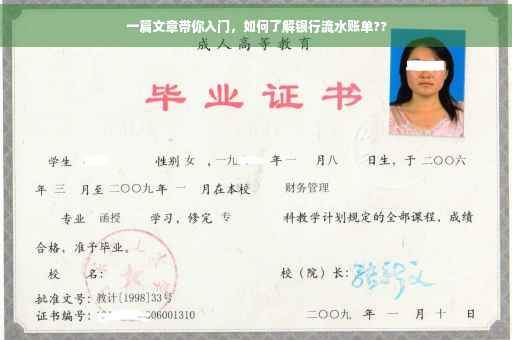 一篇文章带你入门，如何了解银行流水账单??
成人高等教育
毕业证书
学生 性别 女 ，一九 年 一 月八 日生，于 二〇〇六
年 三 月至 二〇〇九 年 一 月在本校 财务管理
专业 函授 学习，修完 专 科教学计划规定的全部课程，成绩
合格，准予毕业。
校 名： 校（院）长：
批准文号：教计[1998]33号
证书编号： 06001310 二〇〇九 年 一 月 十 日